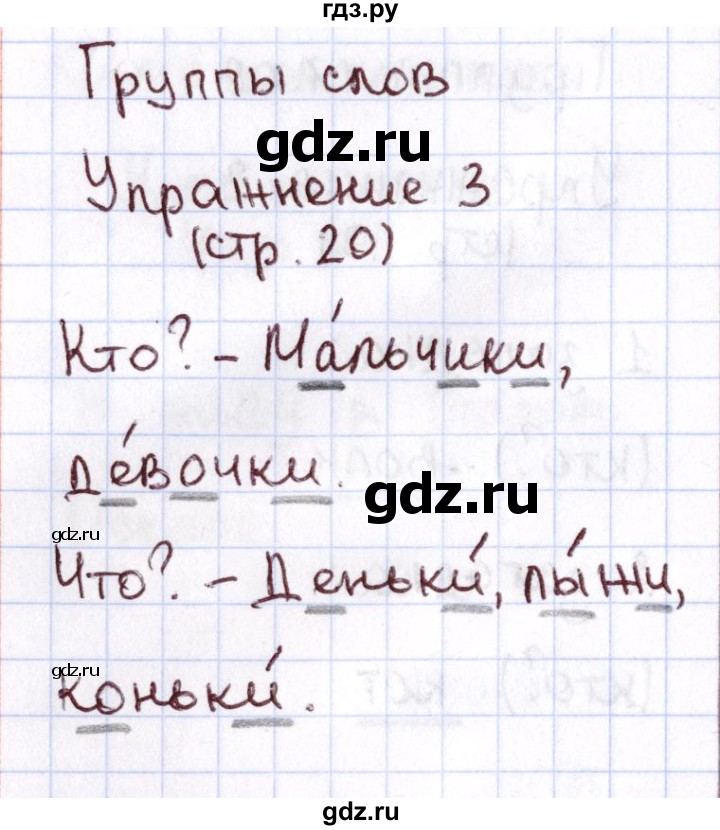 гдз.ру
Группы слов
gdz.ru
Упражнение 3
(стр. 20)
Кто? - Ма́льчики,
де́вочки.
gdz.ru
gdz.ru
Что? - Деньки́, лы́жи,
gdz.ru
коньки́.
gdz.ru